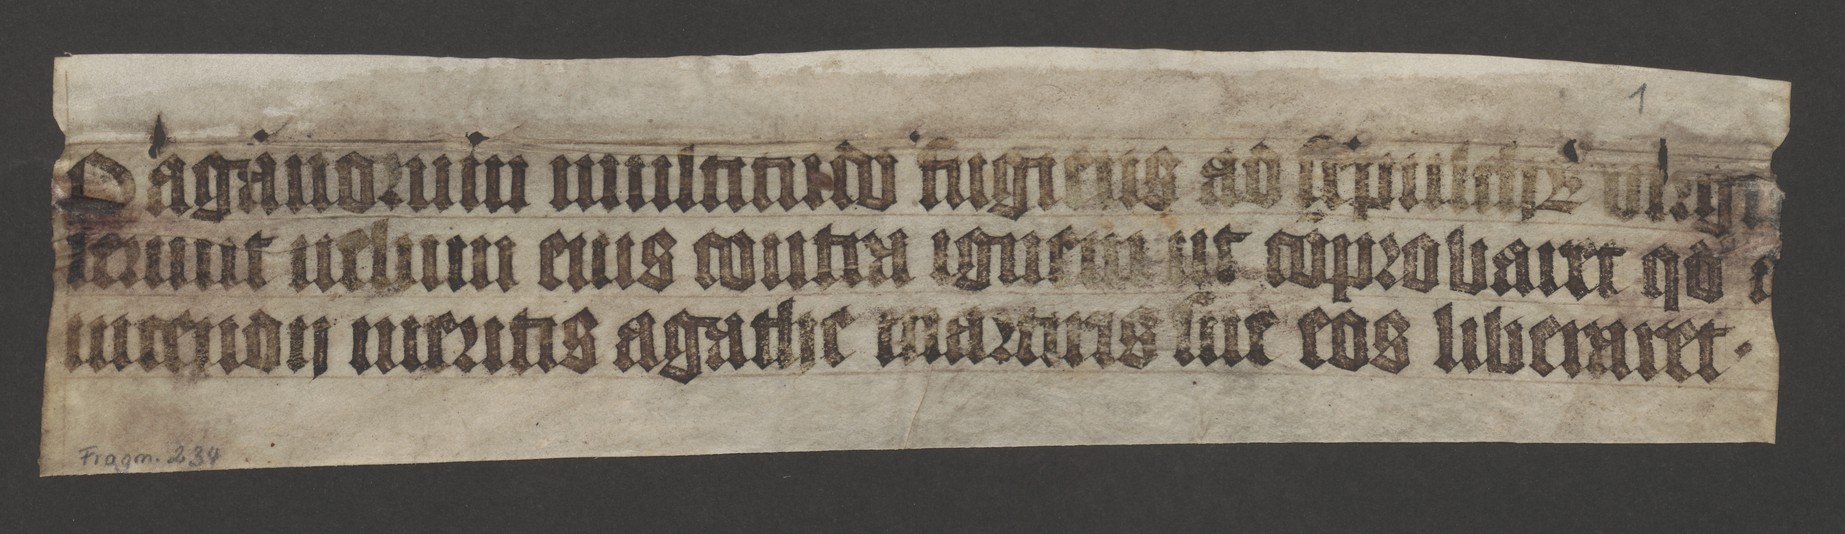 1
Paganorum multitudo fugiens ad sepulchrꝝ virgi
lerunt uelum eius contra ignem ut cōprobaret qđ a
incendij meritis agathe martiris sue eos liberaret.
Fragm. 234